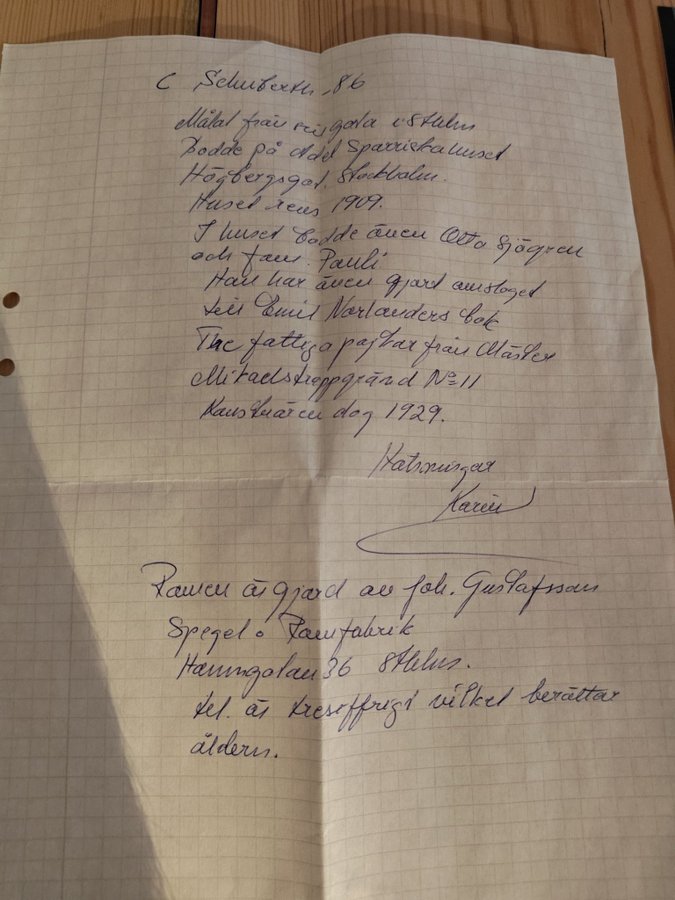 C Schuberth, 86
Målat från gata i Sthlm
Bodde på Adel Sparriska huset
Högbergsgat. Stockholm.
Huset revs 1909.
I huset bodde även Otto Sjögren
och fam. Pauli
Han har även gjord omslaget
till Emil Norlanders bok
The fattiga pojkar från Mäster
Mikaels trappgränd No 11
Konstnären dog 1929.
Hälsningar
Karin
Ramen är gjord av Joh. Gustafsson
Spegel o Ramfabrik
Hamngatan 36 Sthlm.
tel. är tresiffrigt vilket berättar
åldern.